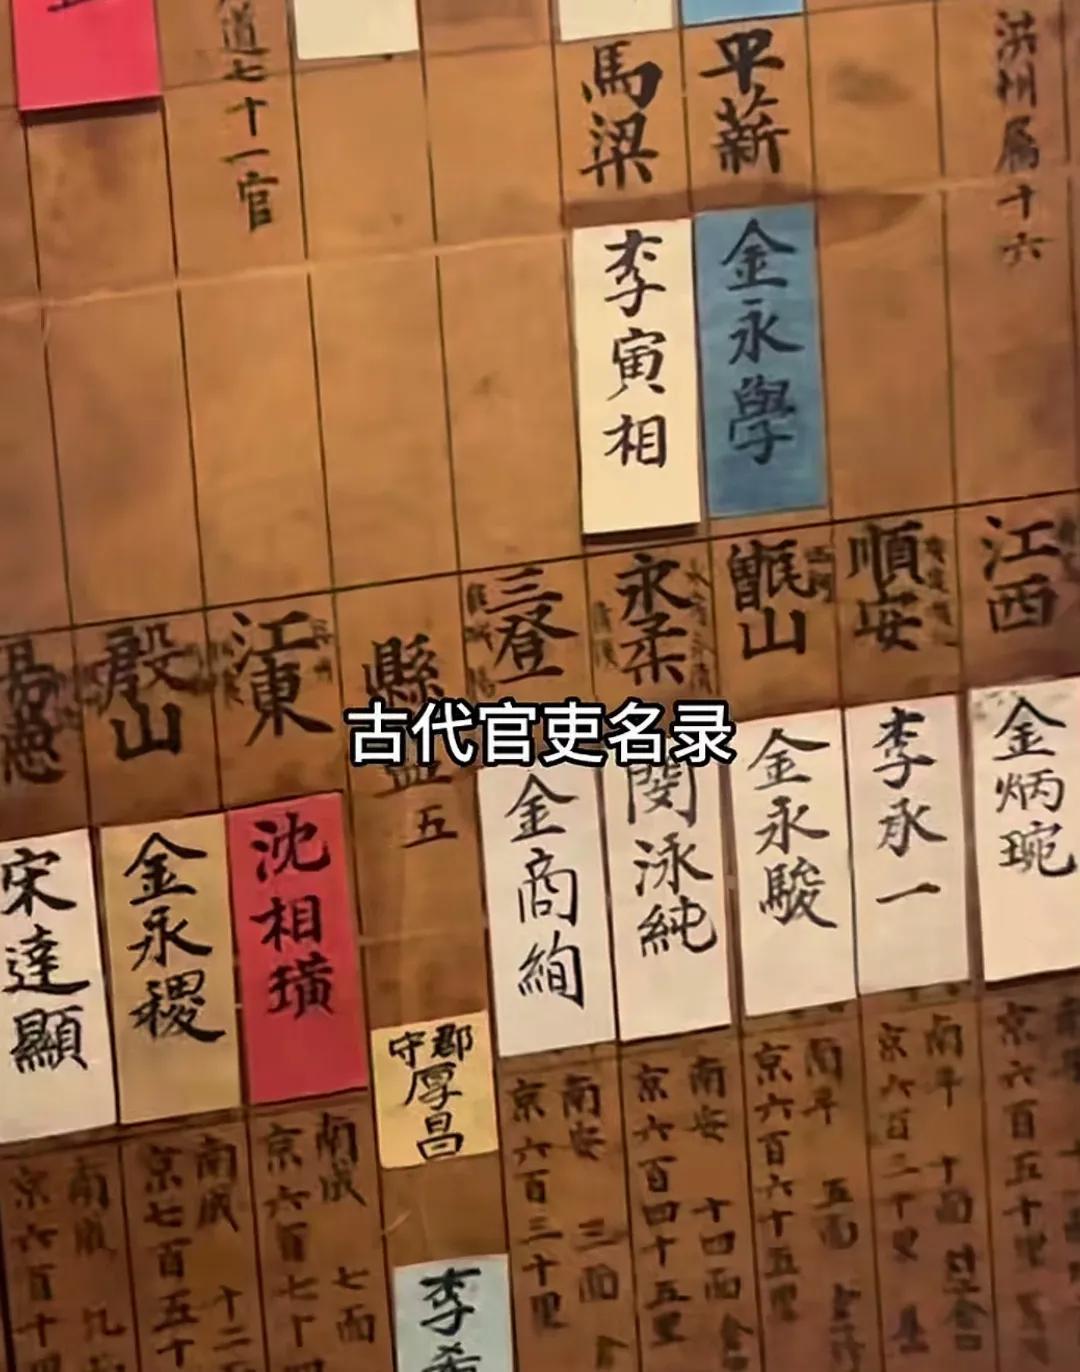 洪州屬十六
平薪
金永學
馬梁
李寅相
道七十一官
江西
金炳琬
京六百五十里
順安
李承一
南平 十面
京六百三十里
甑山
金永駿
南平 五面
京六百六十五里
永柔
閔泳純
南安 十四面
京六百四十五里
三登
金商絢
南安 三面
京六百三十里
縣
五
郡守
厚昌
李希
江東
沈相璜
南成 七面
京六百七十四
殷山
金永稷
南成 十二
京七百五十
宋達顯
南成 九
京六百十
古代官吏名录